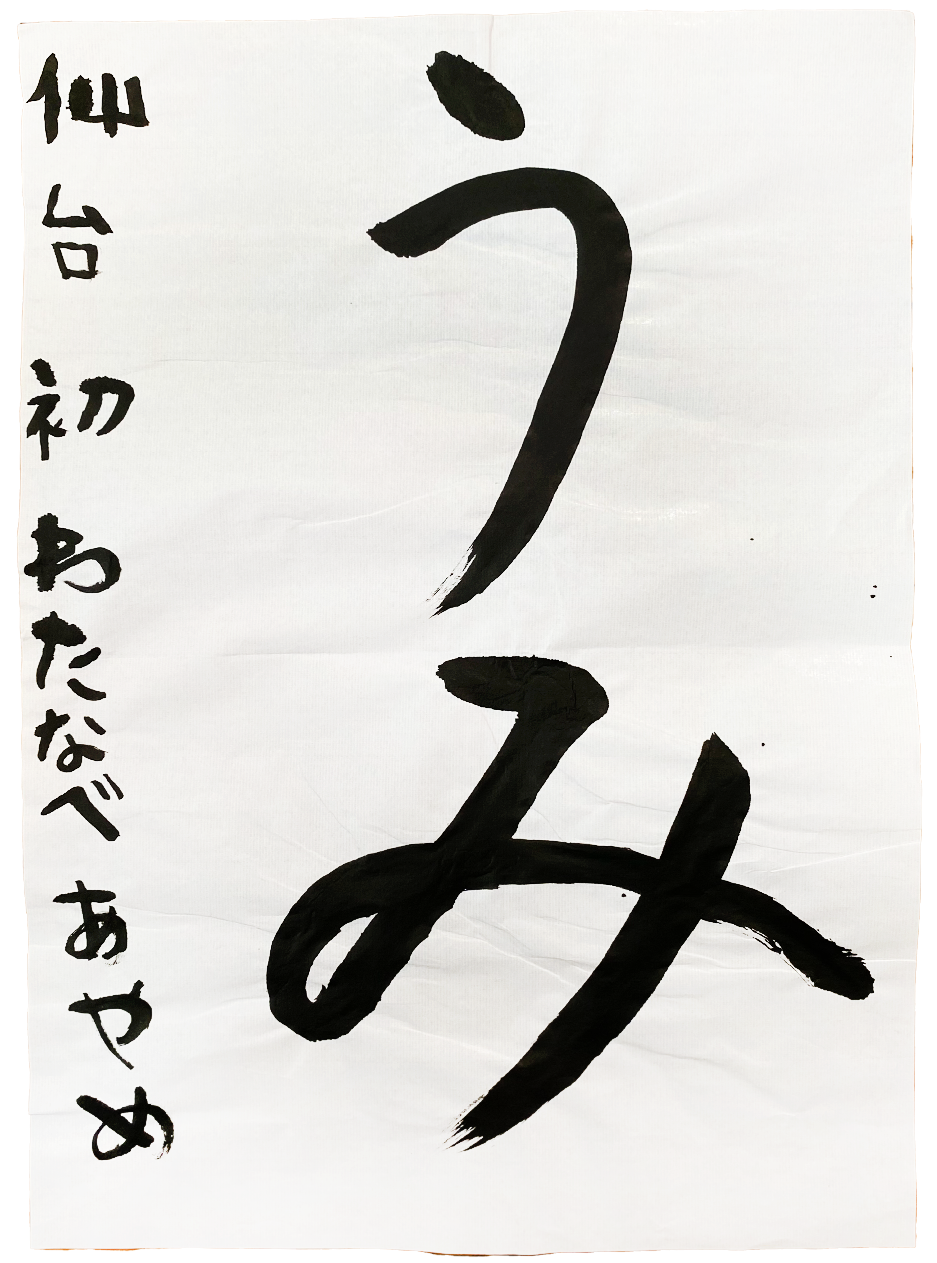 うみ
仙台 初 わたなべ あやめ